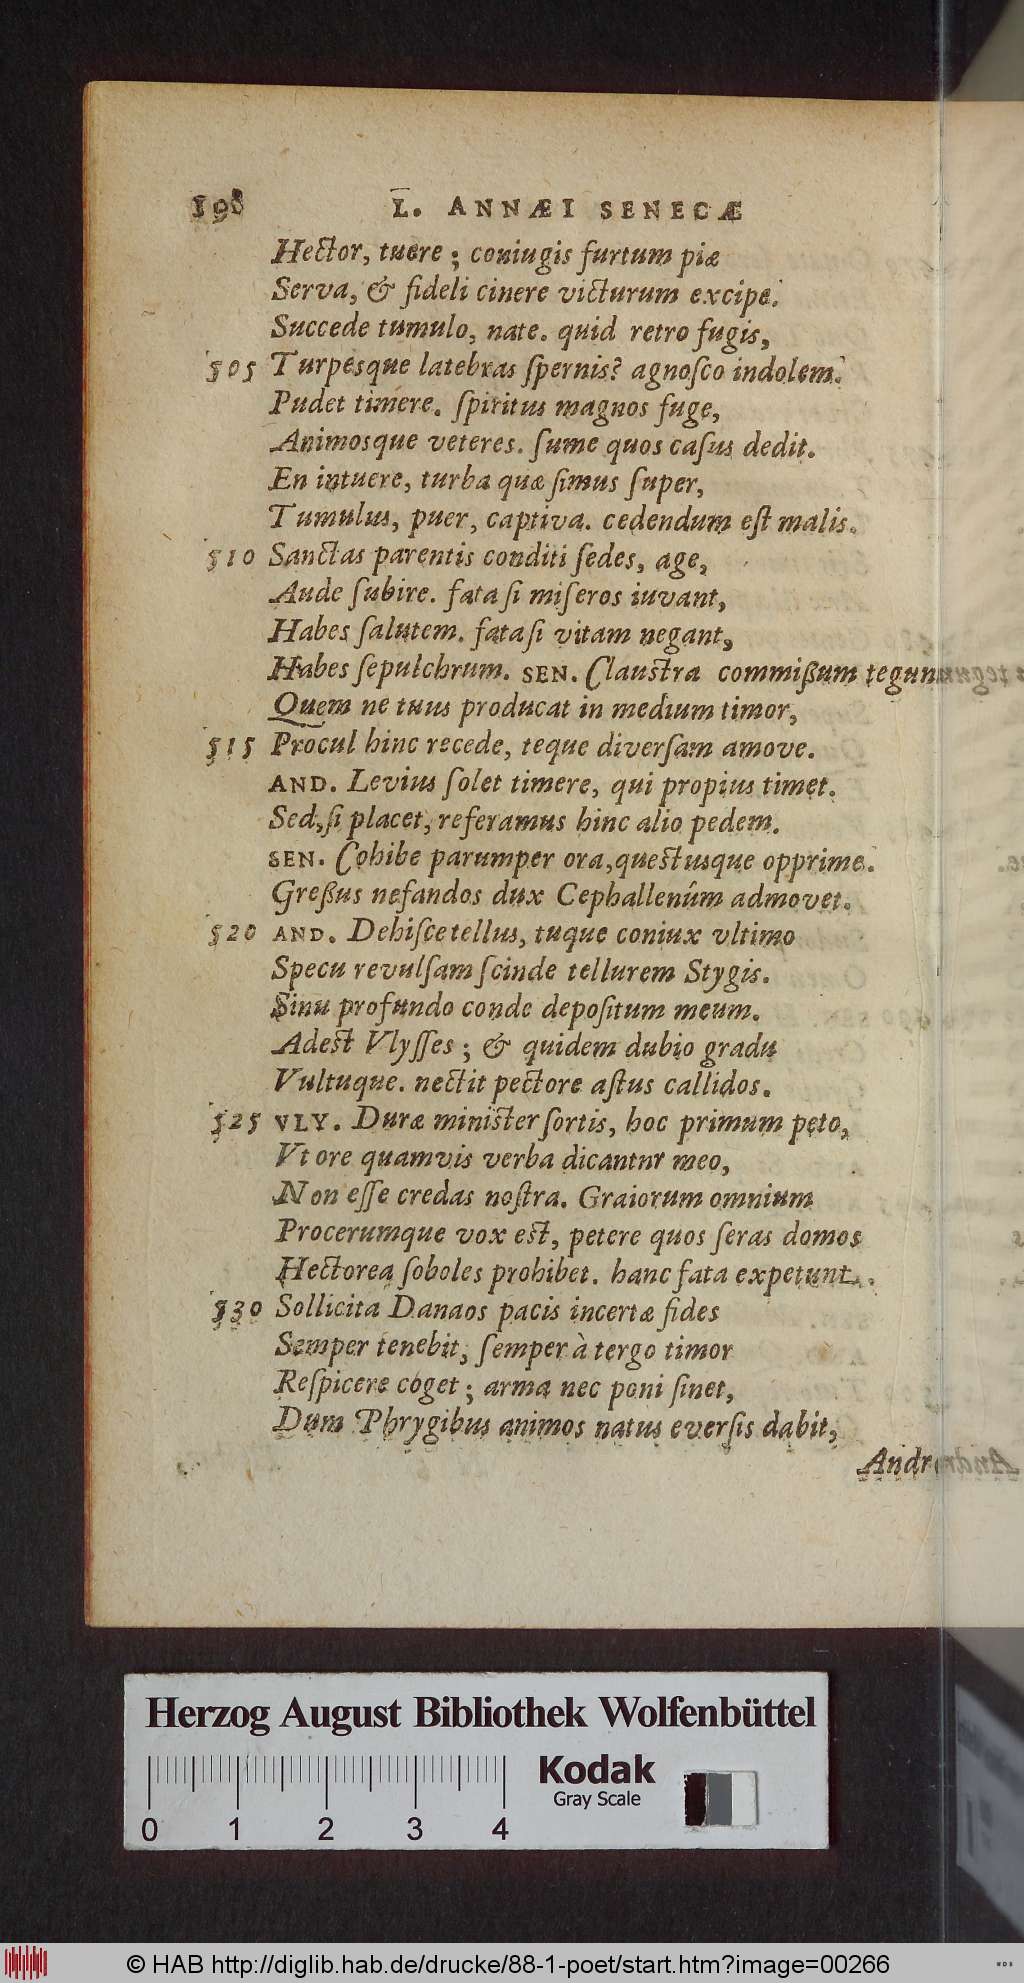 198 L. ANNÆI SENECÆ
Hector, tuere; coniugis furtum piæ
Serva, & fideli cinere victurum excipe.
Succede tumulo, nate. quid retro fugis,
505 Turpesque latebras ſpernis? agnoſco indolem.
Pudet timere. ſpiritus magnos fuge,
Animosque veteres. ſume quos caſus dedit.
En intuere, turba quæ ſimus ſuper,
Tumulus, puer, captiva. cedendum eſt malis.
510 Sanctas parentis conditi ſedes, age,
Aude ſubire. fata ſi miſeros iuvant,
Habes ſalutem. fata ſi vitam negant,
Habes ſepulchrum. SEN. Clauſtra commißum tegunt
Quem ne tuus producat in medium timor,
515 Procul hinc recede, teque diverſam amove.
AND. Levius ſolet timere, qui propius timet.
Sed, ſi placet, referamus hinc alio pedem.
SEN. Cohibe parumper ora, queſtusque opprime.
Greßus nefandos dux Cephallenûm admovet.
520 AND. Dehiſce tellus, tuque coniux vltimo
Specu revulſam ſcinde tellurem Stygis.
Sinu profundo conde depoſitum meum.
Adeſt Vlyſſes; & quidem dubio gradu
Vultuque. nectit pectore aſtus callidos.
525 VLY. Duræ miniſter ſortis, hoc primum peto,
Vt ore quamvis verba dicantnr meo,
Non eſſe credas noſtra. Graiorum omnium
Procerumque vox eſt, petere quos ſeras domos
Hectorea ſoboles prohibet. hanc fata expetunt.
530 Sollicita Danaos pacis incertæ fides
Semper tenebit, ſemper à tergo timor
Reſpicere coget; arma nec poni ſinet,
Dum Phrygibus animos natus everſis dabit,
Andro
Herzog August Bibliothek Wolfenbüttel
Kodak
Gray Scale
0 1 2 3 4
© HAB http://diglib.hab.de/drucke/88-1-poet/start.htm?image=00266